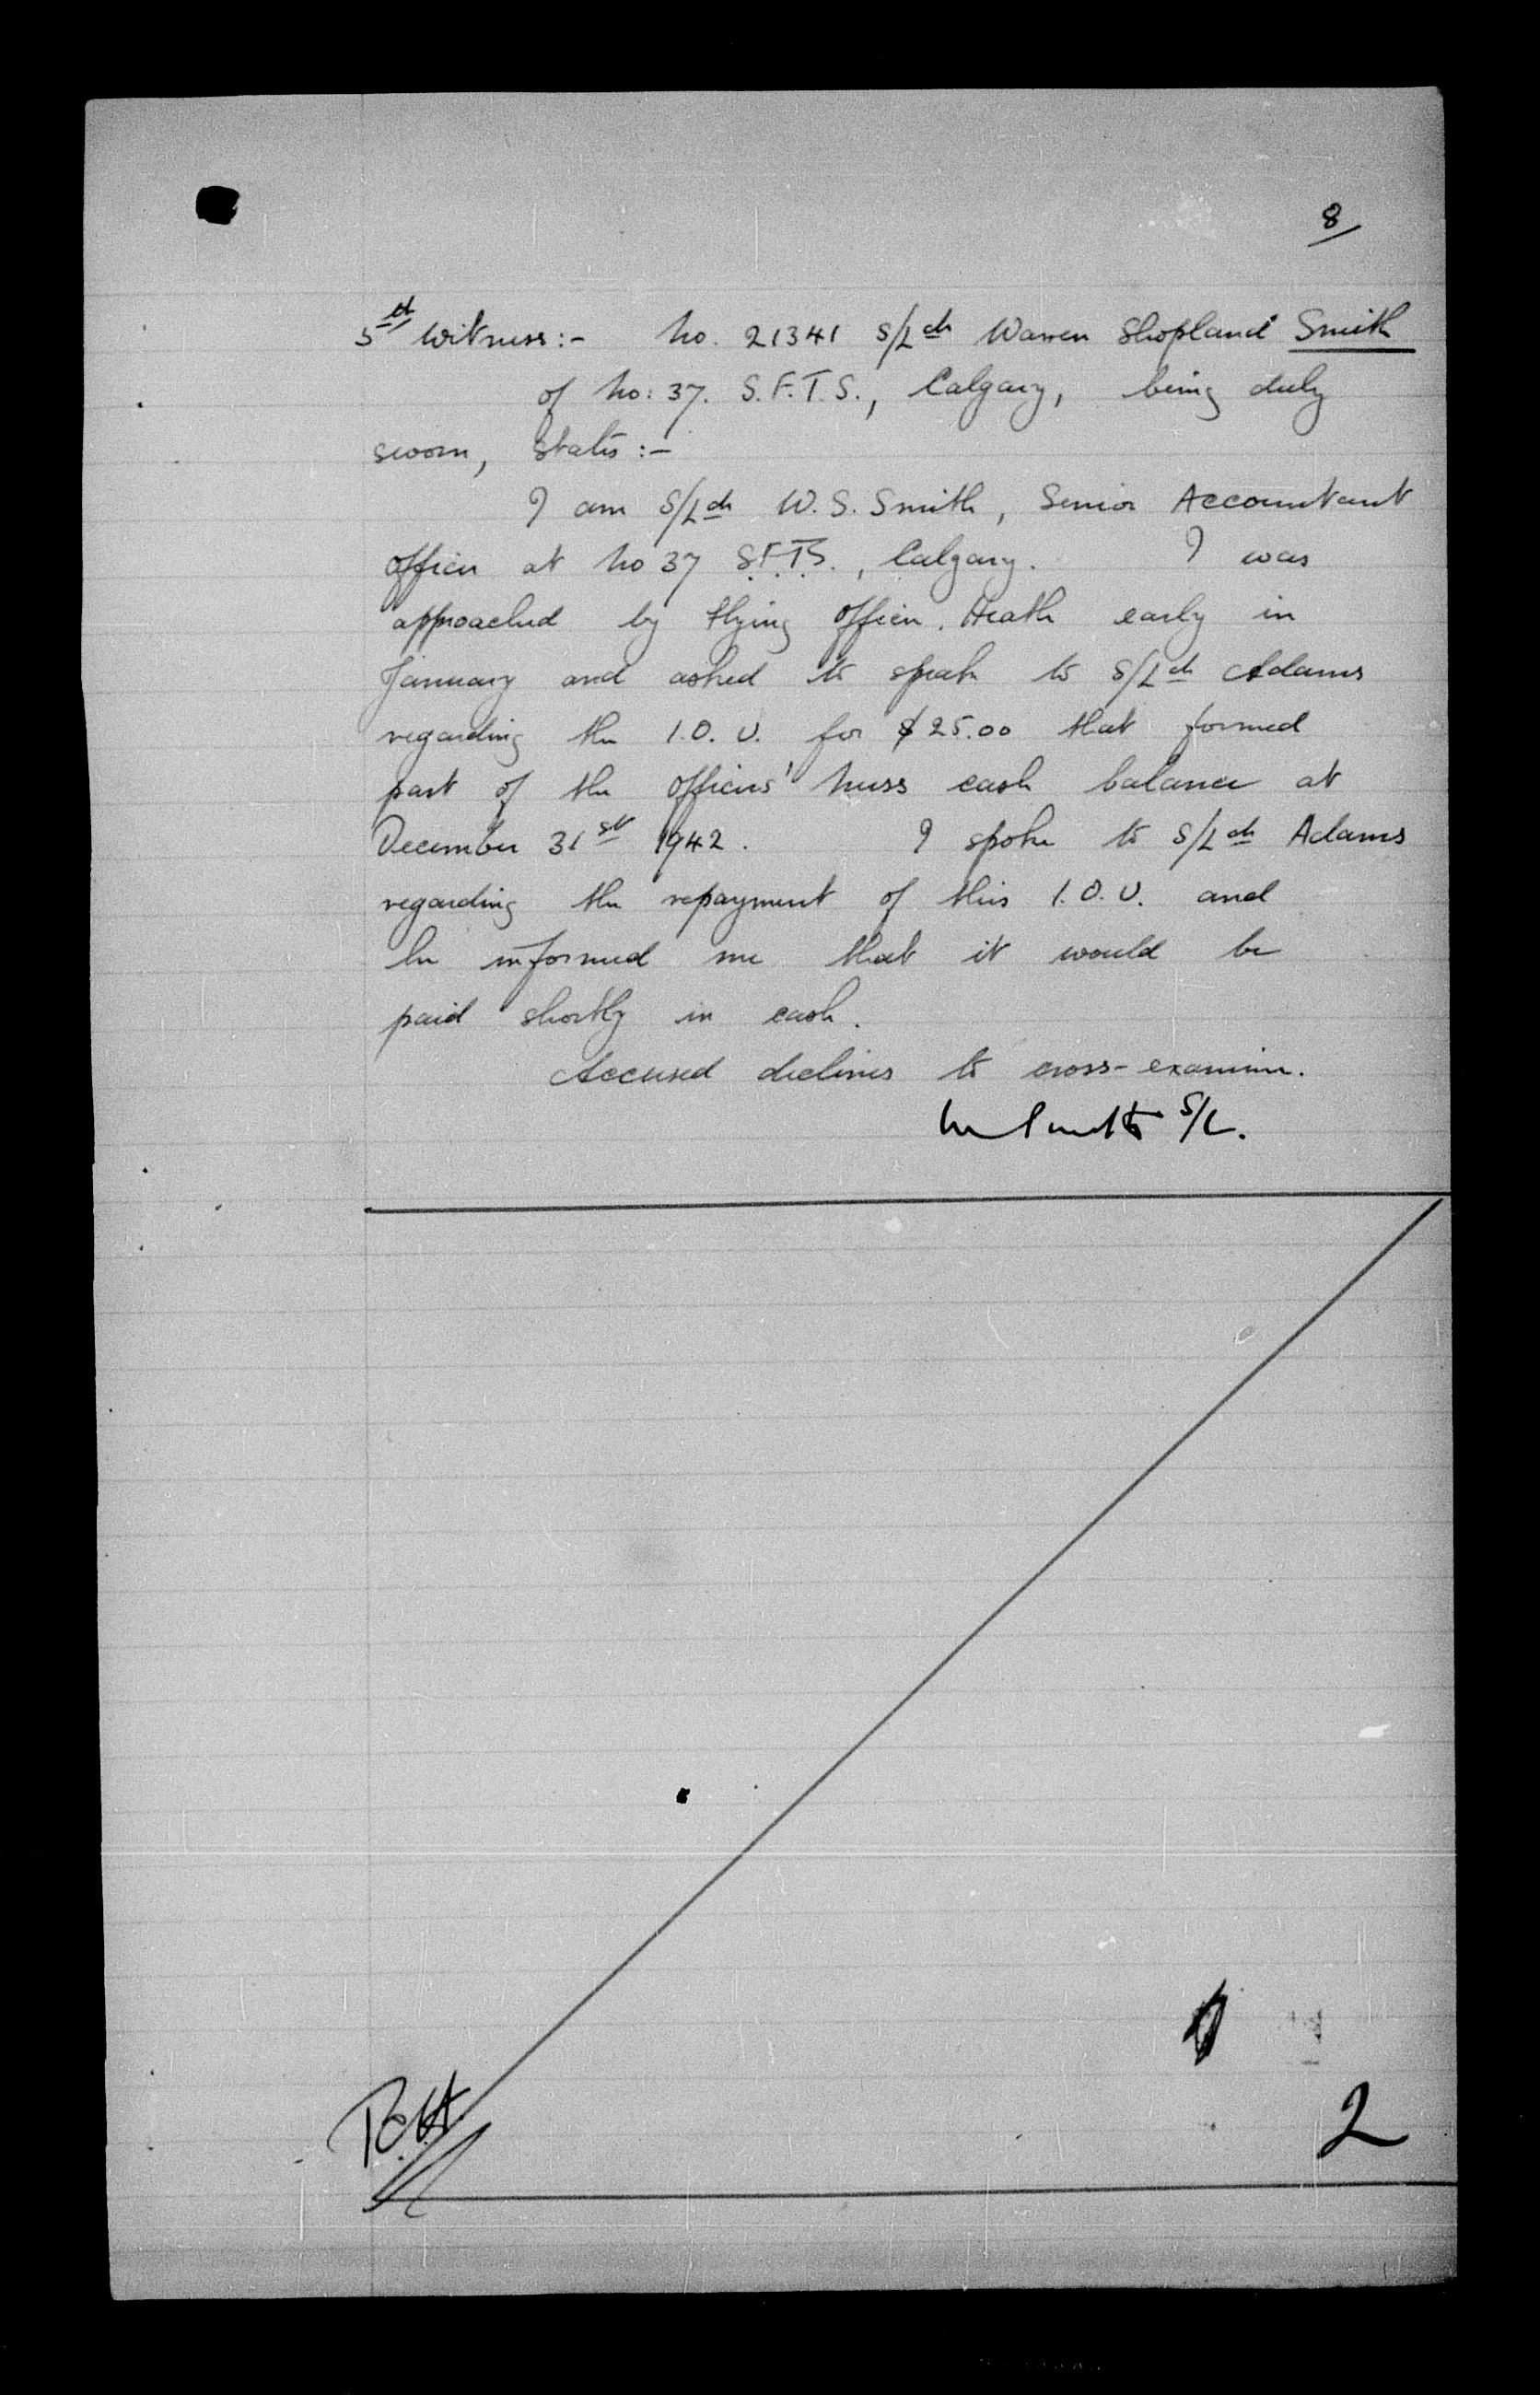 8
5th Witness:- No. 21341 S/Ldr Warren Shopland Smith
of No: 37. S.F.T.S., Calgary, being duly
sworn, states:-
I am S/Ldr W.S. Smith, Senior Accountant
Officer at No 37 S.F.T.S., Calgary. I was
approached by Flying Officer. Heath early in
January and asked to speak to S/Ldr Adams
regarding the I.O.U. for $25.00 that formed
part of the Officers' Mess cash balance at
December 31st 1942. I spoke to S/Ldr Adams
regarding the repayment of this I.O.U. and
he informed me that it would be
paid shortly in cash.
Accused declines to cross-examine.
W Smith S/L.
2